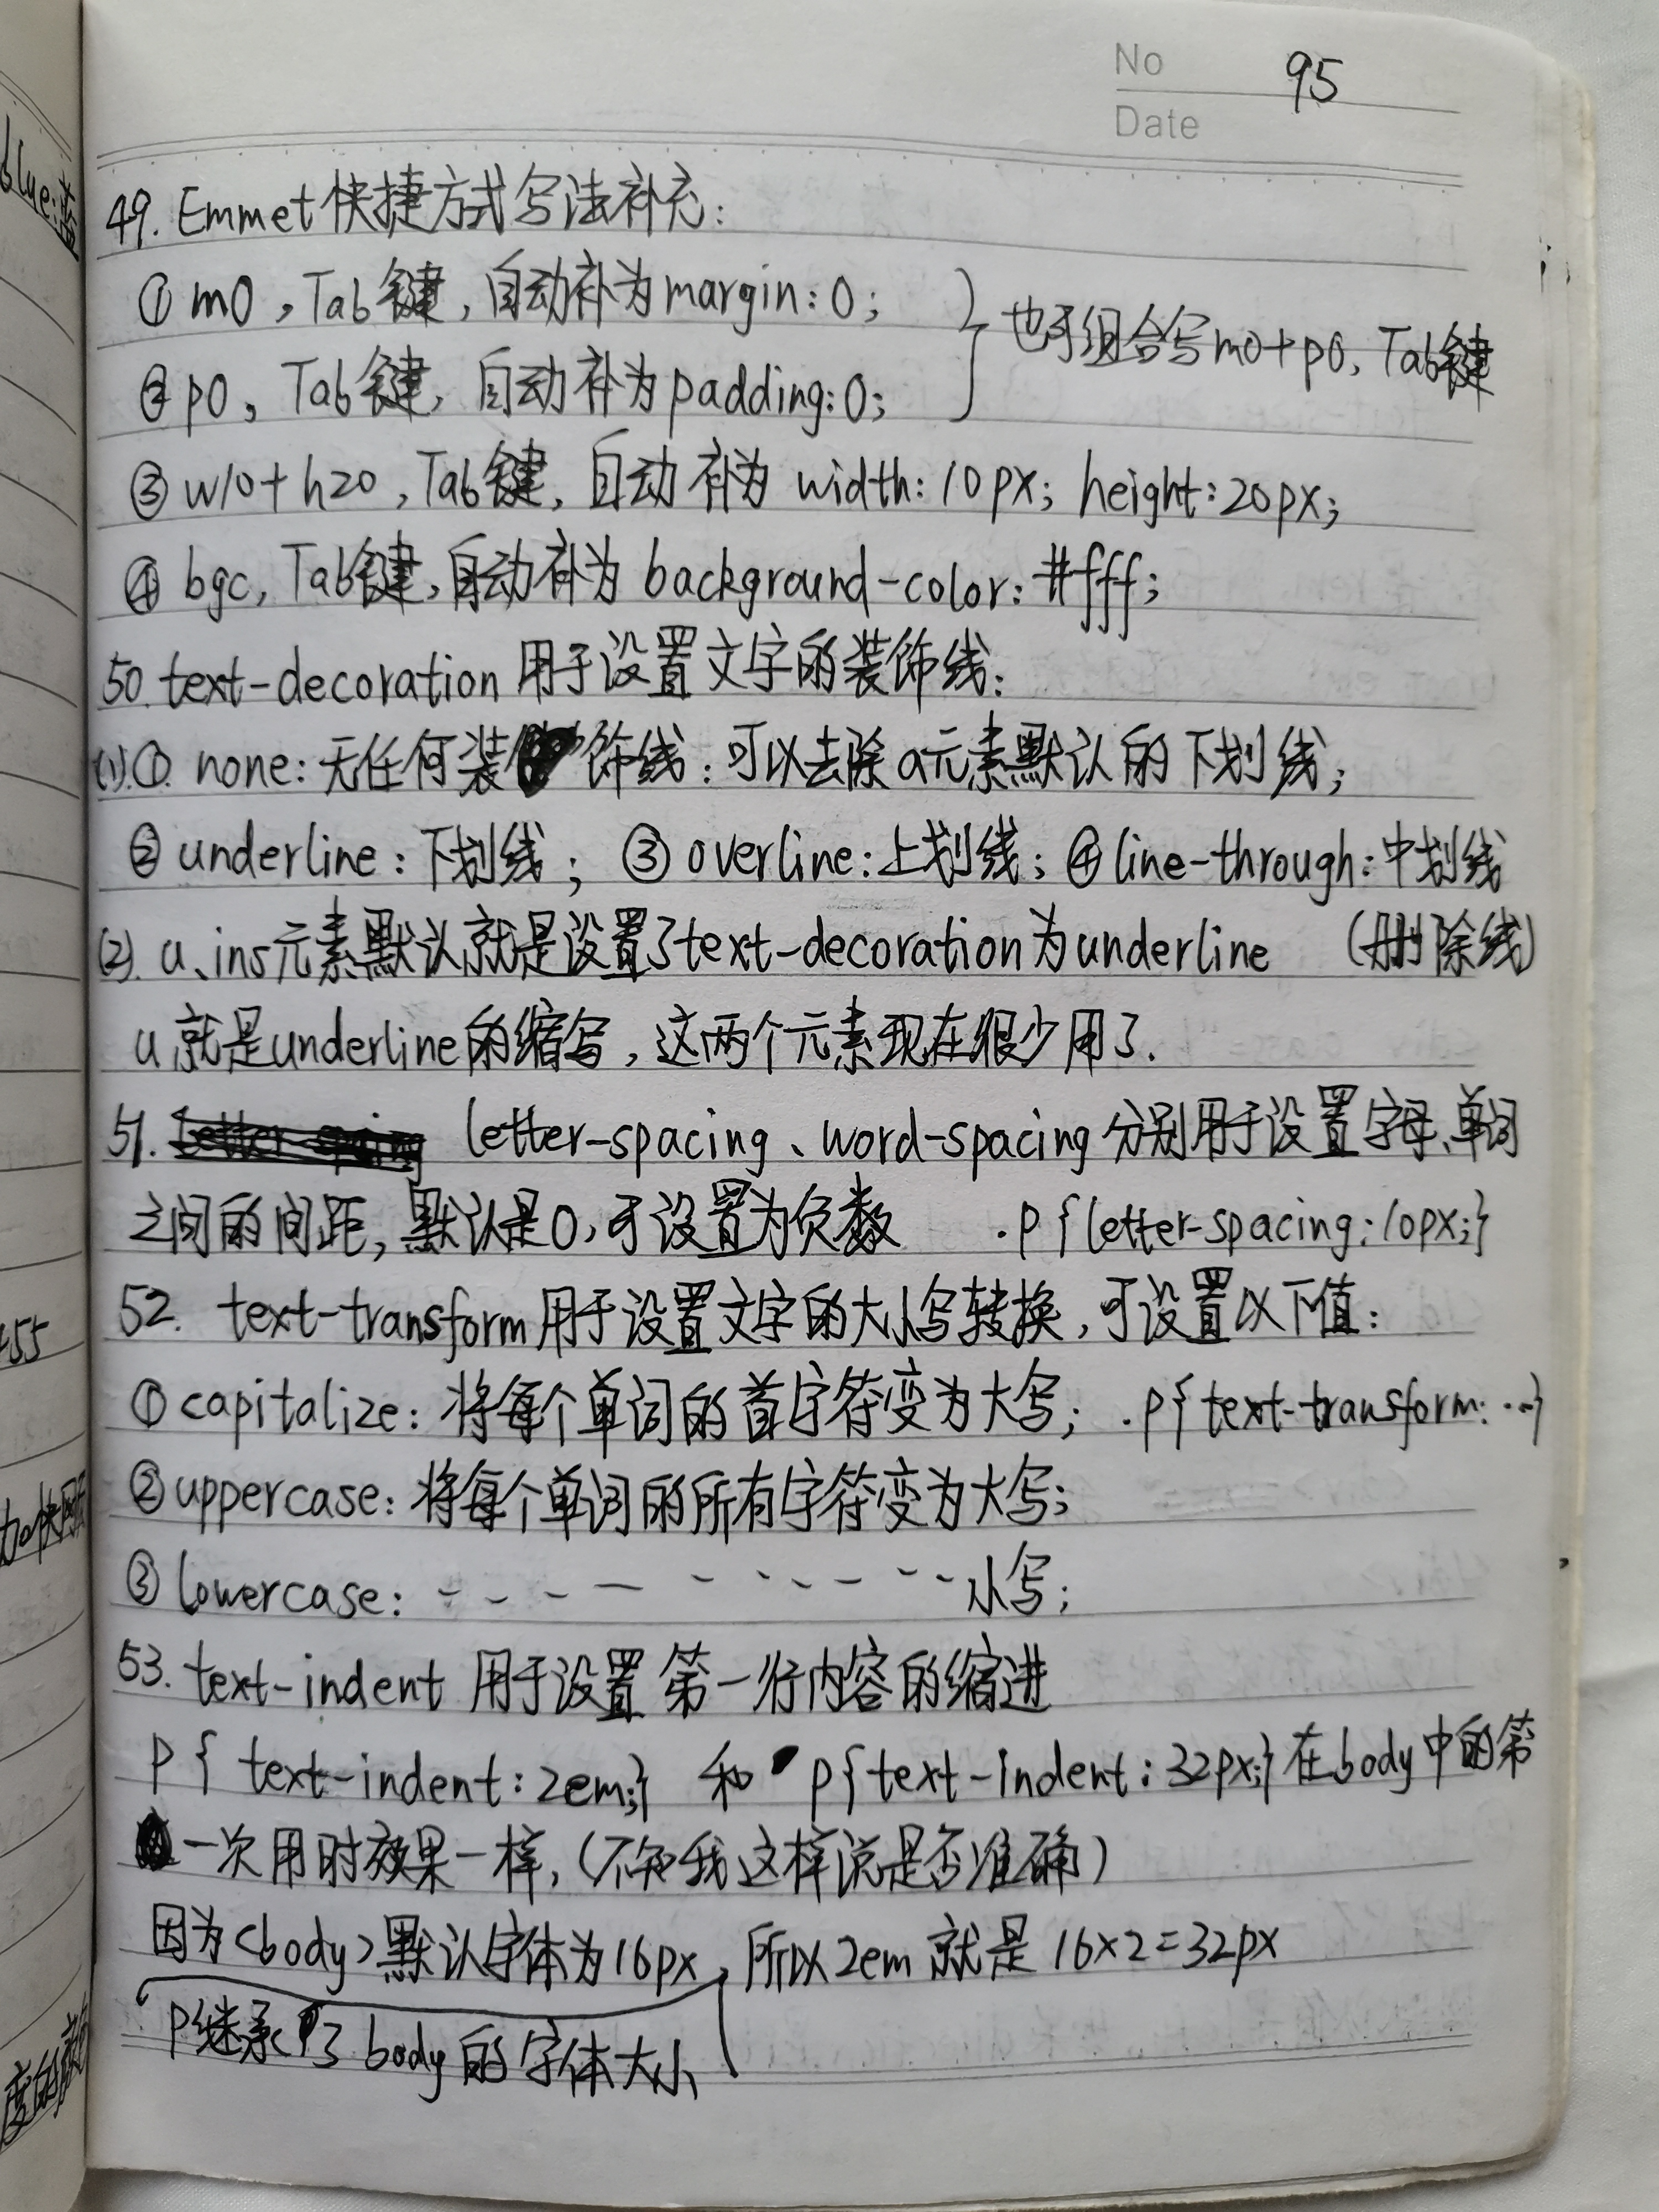 No 95
Date
49. Emmet快捷方式写法补充:
① m0,Tab键,自动补为margin:0;
也可组合写m0+p0,Tab键
② p0,Tab键,自动补为padding:0;
③ w10+h20,Tab键,自动补为 width:10px; height:20px;
④ bgc,Tab键,自动补为 background-color:#fff;
50.text-decoration 用于设置文字的装饰线:
(1).①. none:无任何装饰线:可以去除a元素默认的下划线;
② underline:下划线; ③ overline:上划线;④ line-through:中划线
(2). u、ins元素默认就是设置了text-decoration为underline (删除线)
u就是underline的缩写,这两个元素现在很少用了.
51. letter-spacing、word-spacing分别用于设置字母、单词
之间的间距,默认是0,可设置为负数 .p{letter-spacing:10px;}
52. text-transform用于设置文字的大小写转换,可设置以下值:
① capitalize:将每个单词的首字符变为大写; .p{text-transform:...}
② uppercase:将每个单词的所有字符变为大写;
③ lowercase: - - - - - - - - - - 小写;
53. text-indent 用于设置第一行内容的缩进
p{ text-indent:2em;} 和 p{text-indent:32px;}在body中的第
一次用时效果一样,(不知我这样说是否准确)
因为<body>默认字体为16px,所以2em就是16×2=32px
p继承了body的字体大小
blue:蓝
255